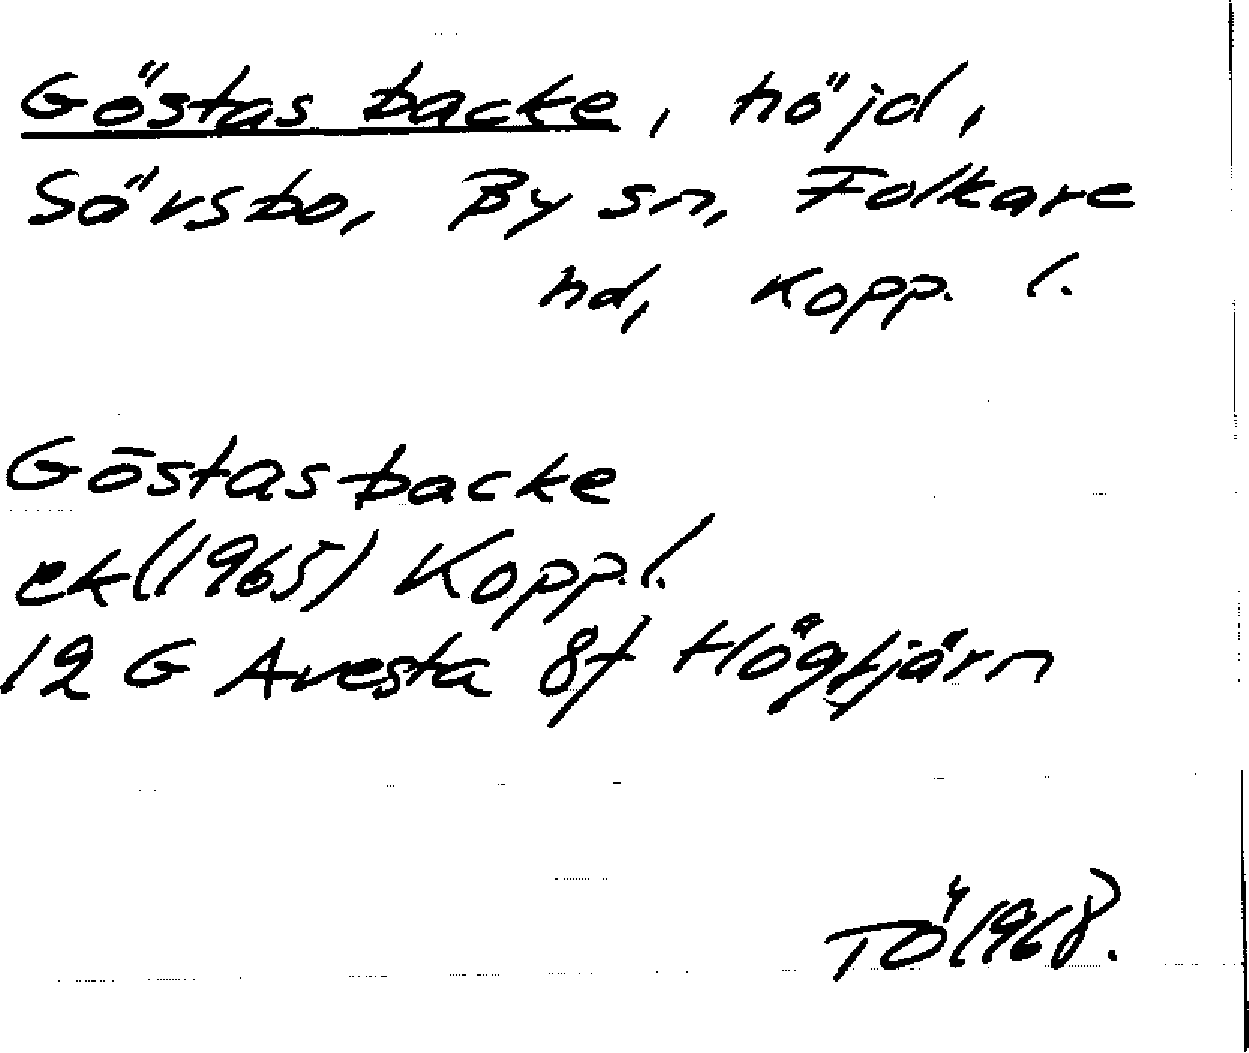 Göstas backe, höjd,
Sörsbo, By sn, Folkare
hd, Kopp. l.
Göstasbacke
ek (1965) Kopp. l.
12 G Avesta 8f Högtjärn
TÖ 1968.